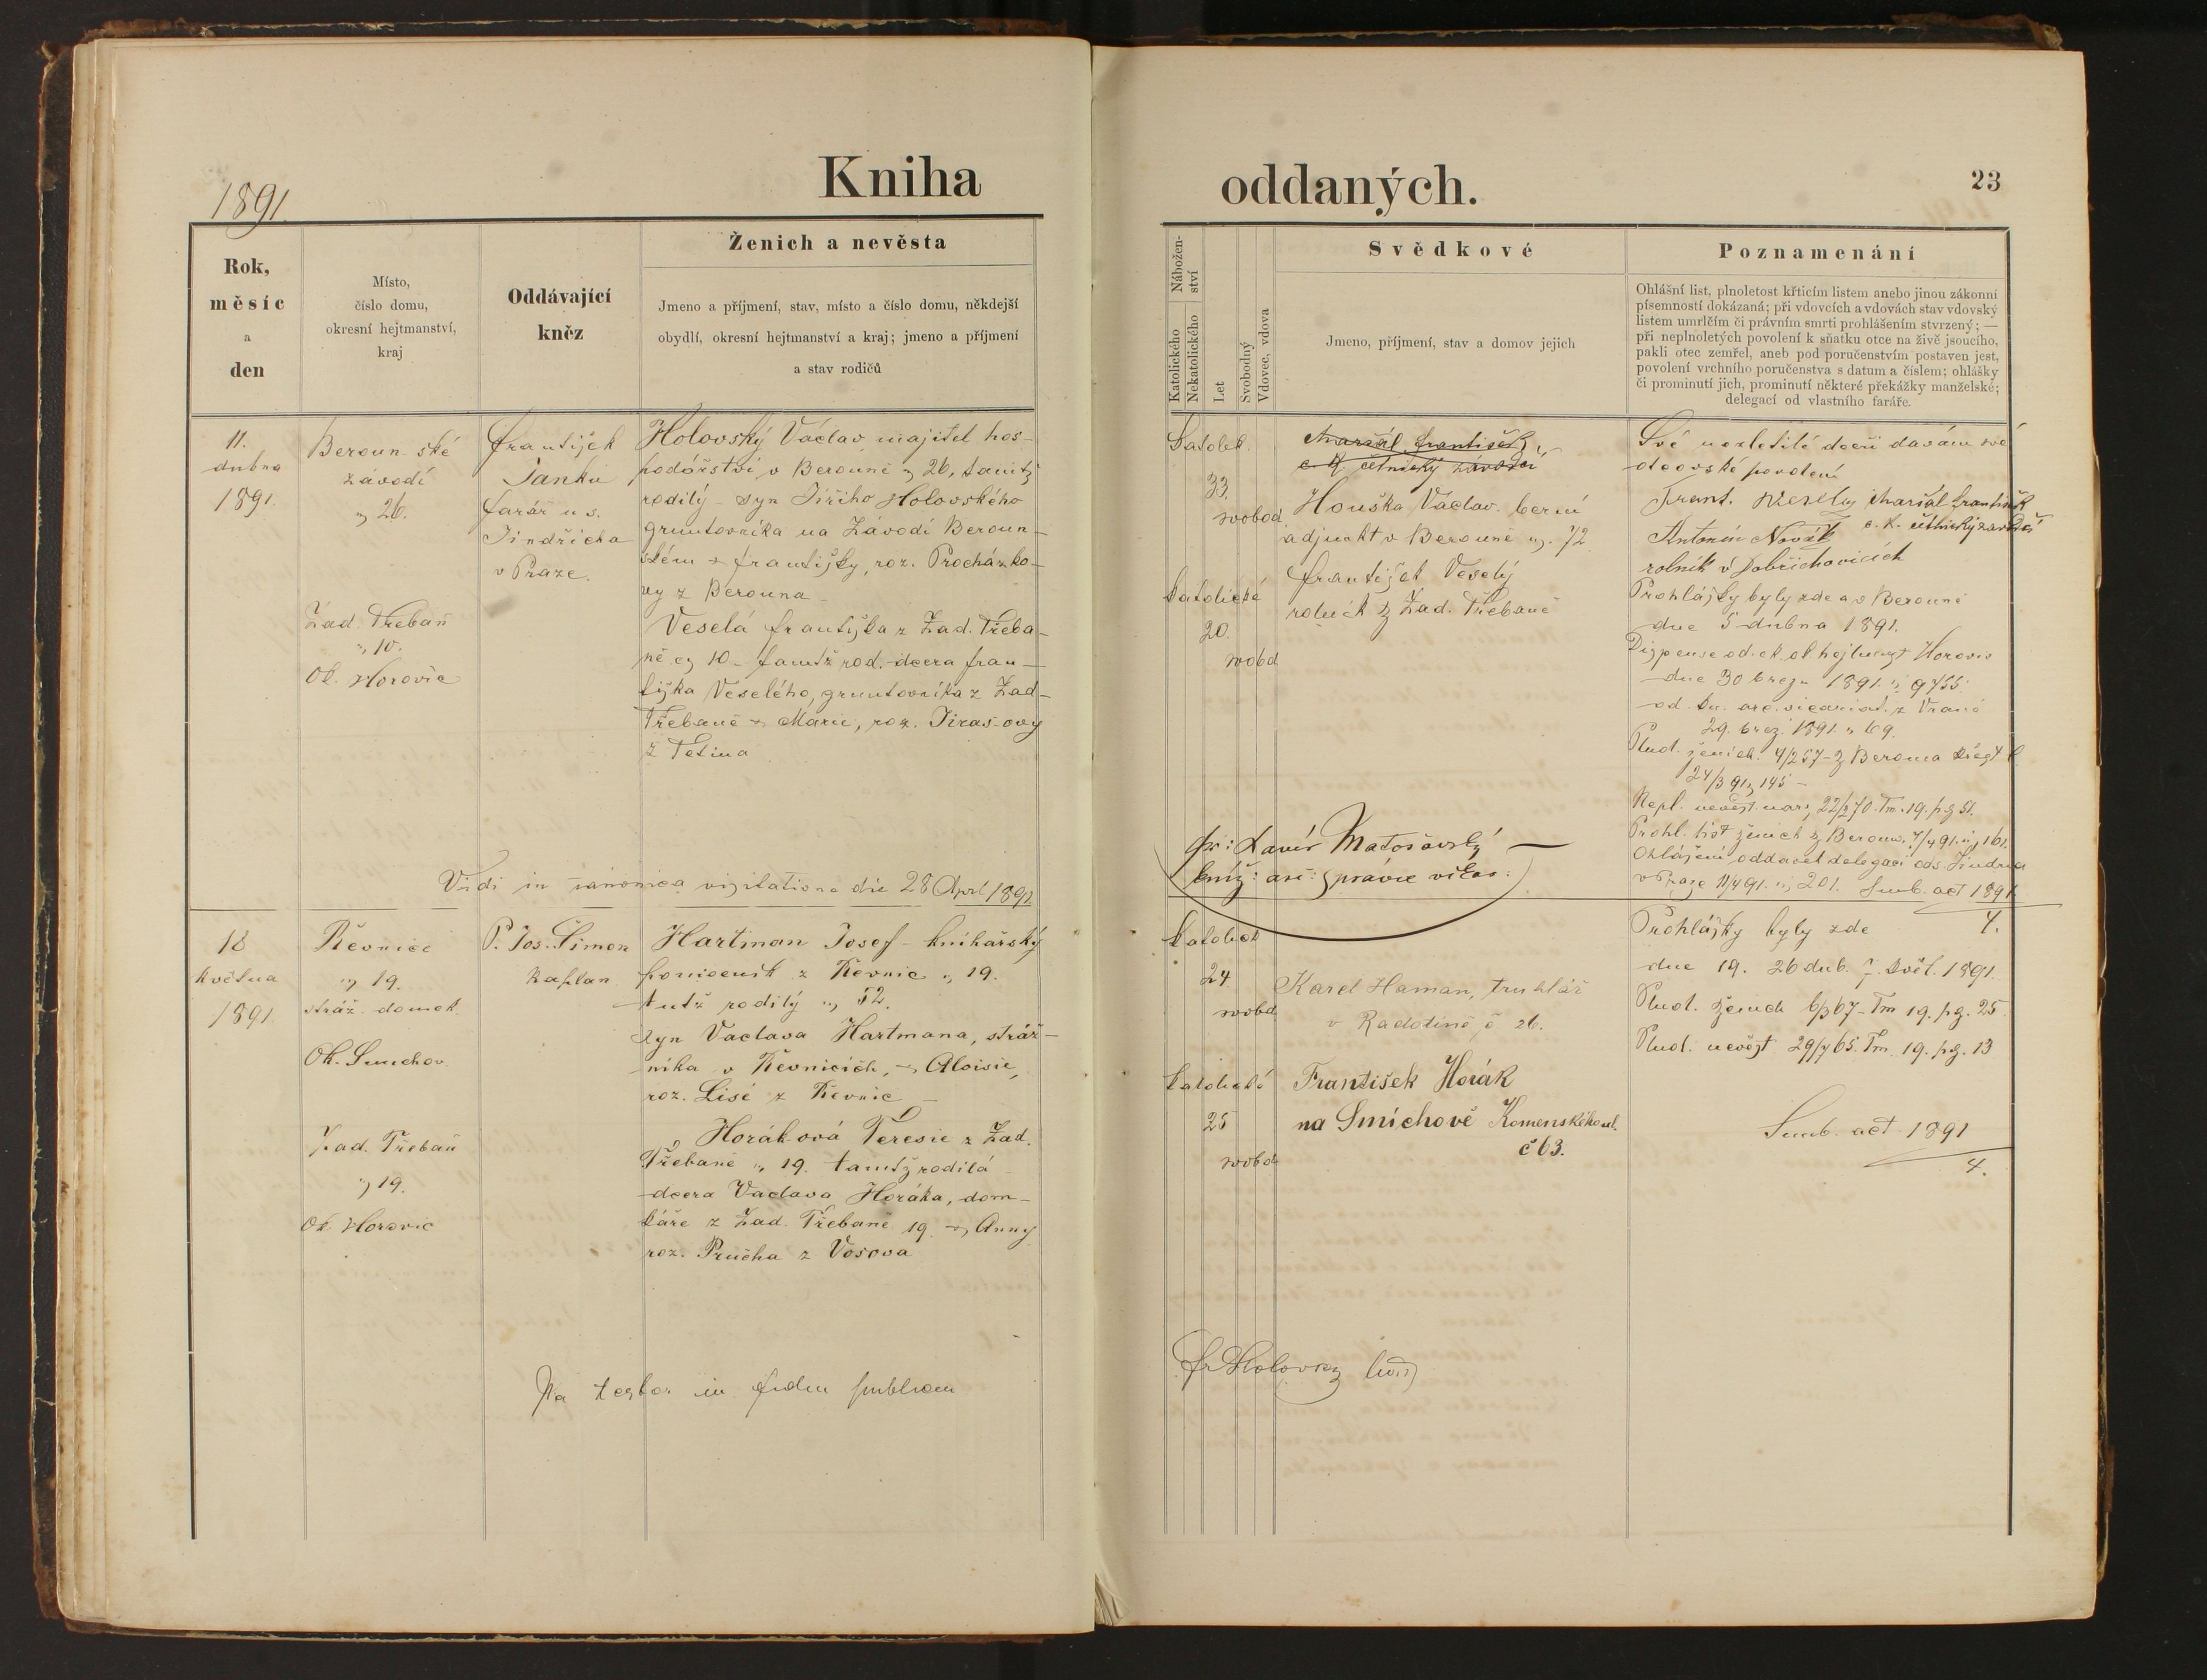 1891
Kniha
Rok,
měsíc
a
den
Místo,
číslo domu,
okresní hejtmanství,
kraj
Oddávající
kněz
Ženich a nevěsta
Jmeno a příjmení, stav, místo a číslo domu, někdejší
obydlí, okresní hejtmanství a kraj; jmeno a příjmení
a stav rodičů
11.
dubna
1891.
Beroun-ské
závodí
26.
František
Janků
farář u s.
Jindřicha
v Praze.
Holovský Václav majitel hos-
podářství v Berouně 26, tamtéž
rodilý syn Jiřího Holovského
gruntovníka na Závodí Beroun-
ském Františky, roz. Procházko-
vy z Berouna
Zad. Třebaň
10.
Ok. Horovic
Veselá Františka z Zad. Třeba-
ně 10 tamtéž rod. dcera Fran-
tiška Veselého, gruntovníka z Zad-
Třebaně Marie, roz. Jiras-ovy
z Tetína
Vidi in canonica visitatione die 28 April 1891
12
května
1891
Řevnice
19.
stráž. domek.
Ok. Smíchov
P. Jos. Šimon
kaplan
Hartman Josef knihařský
pomocník z Řevnic 19.
tutž rodilý 52.
syn Vaclava Hartmana, stráž-
níka v Řevnicích, Aloisie,
roz. Lisé z Řevnic
Zad. Třebaň
19.
Ok. Horovic
Horáková Teresie z Zad.
Třebaně 19. tamtž rodilá
dcera Vaclava Horáka, dom-
káře z Zad. Třebaně 19 Anny
roz. Průcha z Vosova
in fidem publicam
oddaných.
23
Nábožen-
ství
Katolického
Nekatolického
Let
Svobodný
Vdovec, vdova
Svědkové
Jmeno, příjmení, stav a domov jejich
Poznamenání
Ohlášní list, plnoletost křticím listem anebo jinou zákonní
písemností dokázaná; při vdovcích a vdovách stav vdovský
listem umrlčím či právním smrti prohlášením stvrzený; —
při neplnoletých povolení k sňatku otce na živě jsoucího,
pakli otec zemřel, aneb pod poručenstvím postaven jest,
povolení vrchního poručenstva s datum a číslem; ohlášky
či prominutí jich, prominutí některé překážky manželské;
delegací od vlastního faráře.
Katolick.
33.
svobod
Maršál František,
c. k. četnický závodčí
Houška Václav. berní
adjunkt v Berouně 72.
Katolické
20.
svobd
František Veselý
rolník z Zad. Třebaně
Své nezletilé dceři dávám své
otcovské povolení
Frant. Weselý Maršál František
c. k. četnický závodčí
Antonín Novák
rolník v Dobřichovicích
Prohlášky byly zde a v Berouně
dne 5 dubna 1891.
Dispense od ok. hejtmanst Horovic
dne 30 března 1891. 9755.
29. břez. 1891. 169.
24/3 91 145
Prohl. list ženich z Beroun. 7/4 91. 161.
v Praze 11/4 91. 201. Sub. act 1891
4.
Xavír Matošovský
kníž: arc: správce vikar.
Katolick
24
svobd
Karel Haman, truhlář
v Radotíně č 26.
Katolické
25
svobd
František Horák
na Smíchově Komenského ul.
č 63.
Prohlášky byly zde
dne 19. 26 dub. 3. květ. 1891.
Plnol. ženich 6/3 67 Tm 19. pg. 25.
Plnol. nevěst 29/7 65. Tm. 19. pg. 13
Sub. act 1891
4.
Fr Holovský